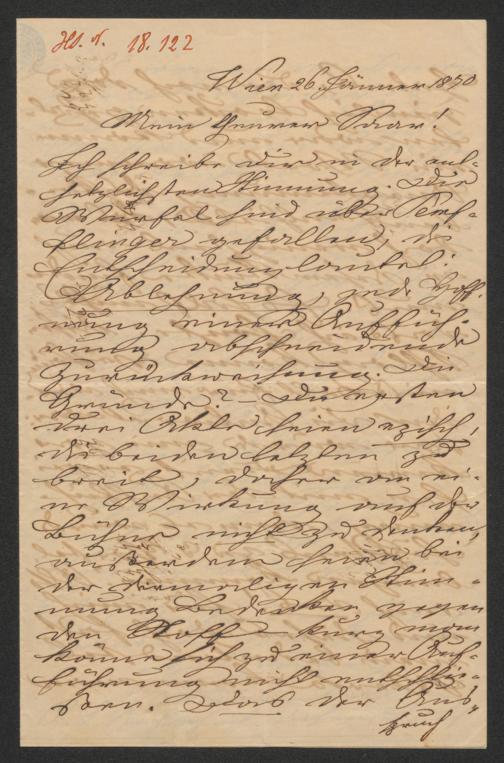 Hs. N. 18.122
Wien 26. Jänner 1870
Mein theurer Saar!
Ich schreibe dir in der ent-
setzlichsten Stimmung. Die
Würfel sind über
gefallen, die
Entscheidung lautet:
Ablehnung, jede Hoff-
nung einer Auffüh-
rung abschneidende
Zurückweisung. Die
Gründe? – Die ersten
drei Akte seien episch,
die beiden letzten zu
breit, daher an ei-
ne Wirkung auf der
Bühne nicht zu denken,
außerdem seien bei
der dermaligen Stim-
mung Bedenken gegen
den Stoff – kurz man
könne sich zu einer Auf-
führung nicht entschlie-
ßen. Das der Aus-
spruch